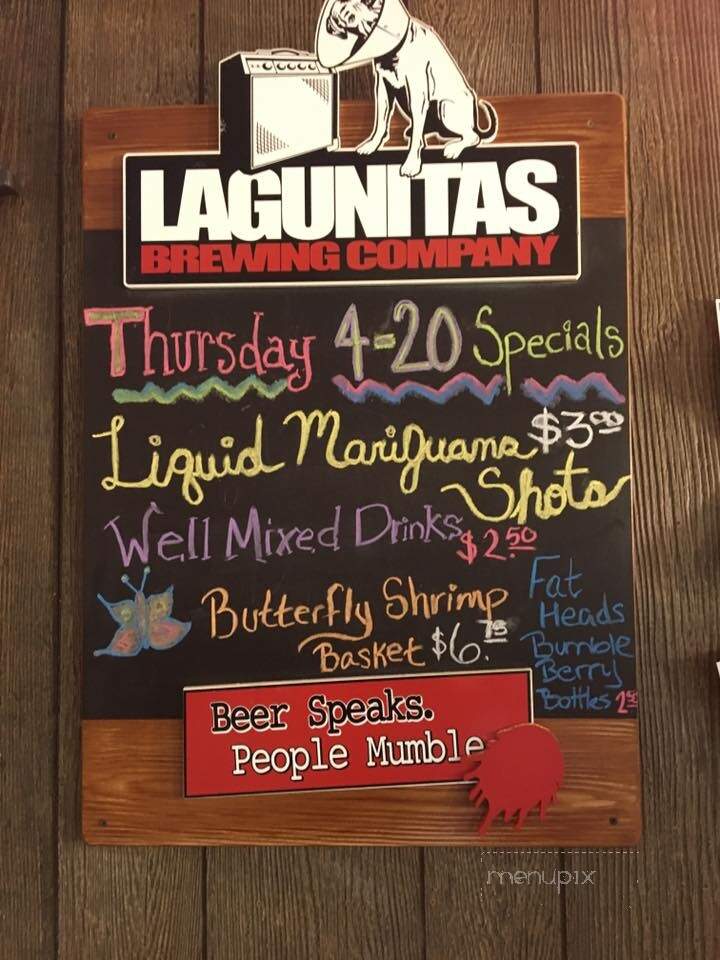 LAGUNITAS
BREWING COMPANY
Thursday 4-20 Specials
Liquid Marijuana $3.00
Shots
Well Mixed Drinks $2.50
Butterfly Shrimp
Basket $6.75
Fat
Heads
Bumble
Berry
Bottles 2.50
Beer Speaks.
People Mumble
menupix